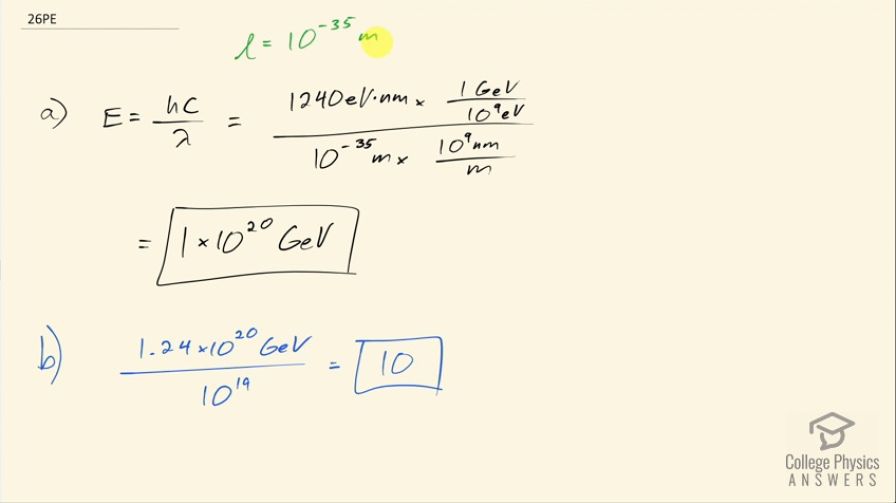 26PE
l = 10⁻³⁵ m
a) E = hc/λ = (1240 eV·nm × 1 GeV/10⁹ eV)/(10⁻³⁵ m × 10⁹ nm/m)
= 1 × 10²⁰ GeV
b) 1.24 × 10²⁰ GeV/10¹⁹ = 10
College Physics
ANSWERS